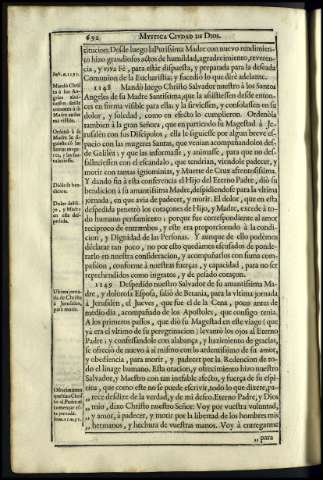 692 MYSTICA CIVDAD DE DIOS.
titucion. Desde luego la Purissima Madre con nuevo rendimien-
to hizo grandiosos actos de humildad, agradecimiento, reveren-
cia, y viva Fè, para estàr dispuesta, y preparada para la deseada
Comunion de la Eucharistia: y sucediò lo que dirè adelante.
1148 Mandò luego Christo Salvador nuestro à los Santos
Angeles de su Madre Santissima, que la assistiessen desde enton-
ces en forma visible para ellas y la sirviessen, y consolassen en su
dolor, y soledad, como en efecto lo cumplieron. Ordenòla
tambien à la gran Señora, que en partiendo su Magestad à Je-
rusalèn con los Discipulos, ella le siguiesse por algun breve es-
pacio con las mugeres Santas, que venian acompañandolos des-
de Galilea: y que las informasse, y animasse, para que no des-
falleciessen con el escandalo, que tendrian, viendole padecer, y
morir con tantas ignominias, y Muerte de Cruz afrentosissima.
Y dando fin à esta conferencia el Hijo del Eterno Padre, diò su
bendicion à su amantissima Madre, despidiendose para la vltima
jornada, en que avia de padecer, y morir. El dolor, que en esta
despedida penetrò los corazones de Hijo, y Madre, excede à to-
do humano pensamiento; porque fue correspondiente al amor
reciproco de entrambos, y este era proporcionado à la condi-
cion, y Dignidad de las Personas. Y aunque de ello podèmos
declarar tan poco, no por esto quedamos escusados de ponde-
rarlo en nuestra consideracion, y acompañarlos con suma com-
passion, conforme à nuestras fuerzas, y capacidad, para no ser
reprehendidos como ingratos, y de pesado corazon.
1149 Despedido nuestro Salvador de su amantissima Ma-
dre, y dolorosa Esposa, saliò de Betania, para la vltima jornada
à Jerusalèn, el Jueves, que fue el de la Cena, poco antes de
medio dia, acompañado de los Apostoles, que consigo tenia.
A los primeros passos, que diò su Magestad en este viage; que
ya era el vltimo de su peregrinacion; levantò los ojos al Eterno
Padre: y confessandole con alabanza, y hazimiento de gracias,
se ofreciò de nuevo à sì mismo con lo ardentissimo de su amor,
y obediencia, para morir, y padecer por la Redencion de to-
do el linage humano. Esta oracion, y ofrecimiento hizo nuestro
Salvador, y Maestro con tan inefable afecto, y fuerza de su espi-
ritu, que como este no se puede escrivir, todo lo que dixere, pa-
rece desdize de la verdad, y de mi deseo. Eterno Padre, y Dios
„ mio, dixo Christo nuestro Señor: Voy por vuestra voluntad,
„ y amor, à padecer, y morir por la libertad de los hombres mis
„ hermanos, y hechura de vuestras manos. Voy à entregarme
„ para